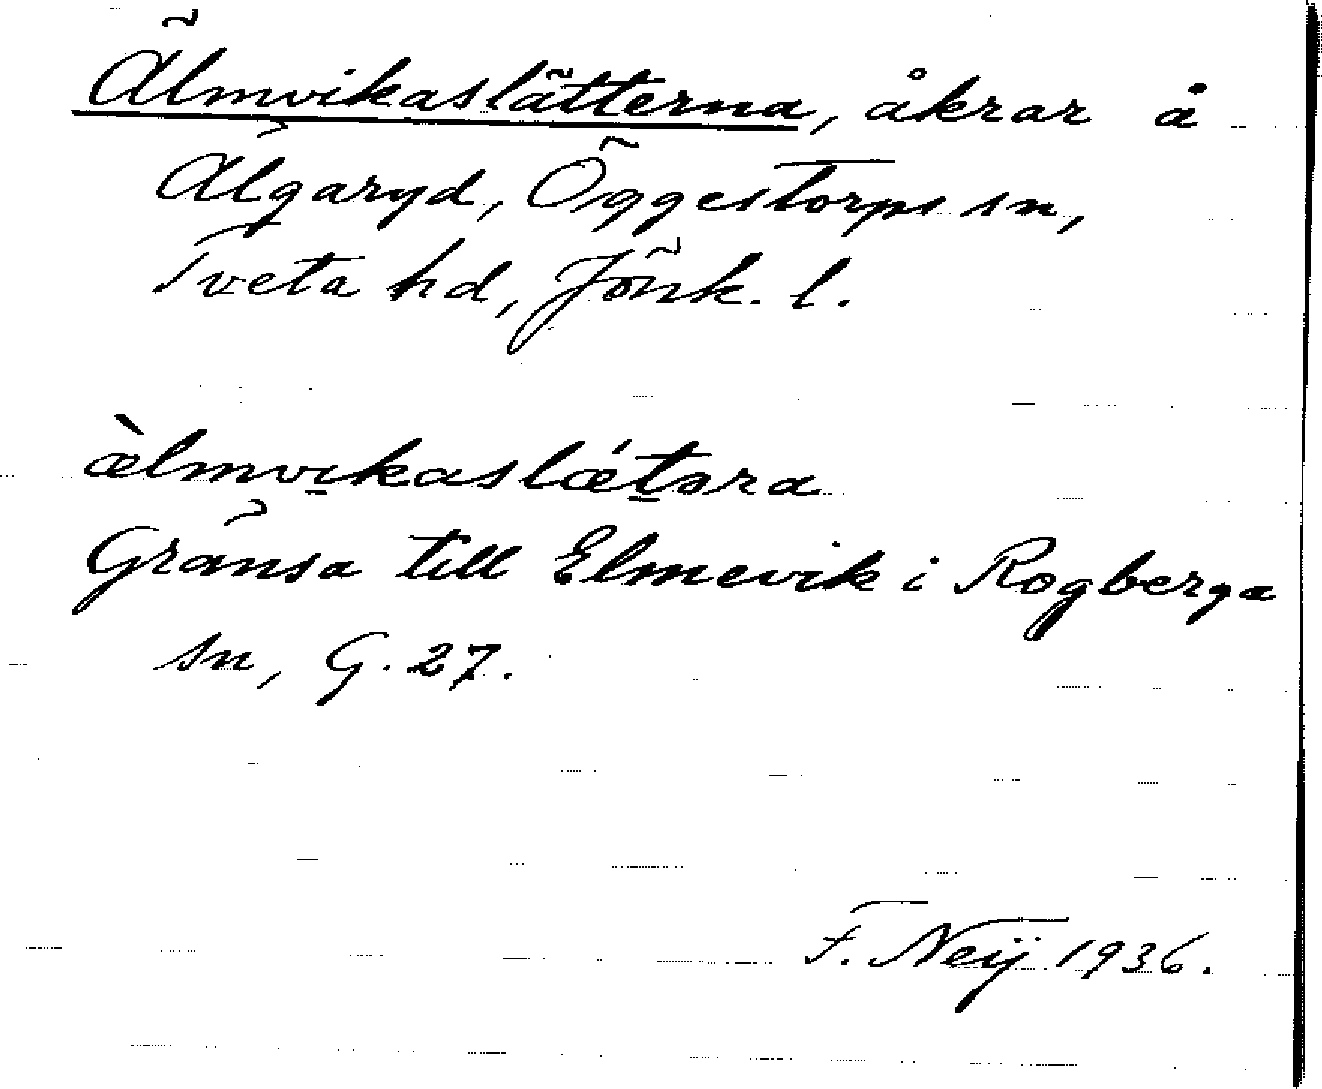 Älmvikaslätterna, åkrar å
Älgaryd, Öggestorps sn,
Tveta hd, Jönk. l.
æ̀lmvi̱kaslǽt̲ǝra
Gränsa till Elmevik i Rogberga
sn, G. 27.
F. Neij 1936.